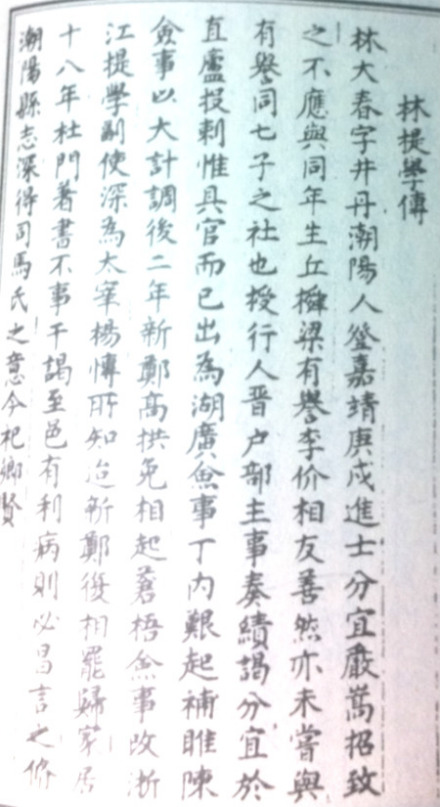 林提學傳
林大春字井丹潮陽人登嘉靖庚戌進士分宜嚴嵩招致
之不應與同年生丘橓梁有譽李价相友善然亦未嘗與
有譽同七子之社也授行人晉户部主事奏績謁分宜於
直廬投刺惟具官而已出為湖廣僉事丁内艱起補睢陳
僉事以大計調後二年新鄭高拱免相起蒼梧僉事改浙
江提學副使深為太宰楊愽所知迨新鄭復相罷歸家居
十八年杜門著書不事干謁至邑有利病則必昌言之脩
潮陽縣志深得司馬氏之意今祀鄉賢